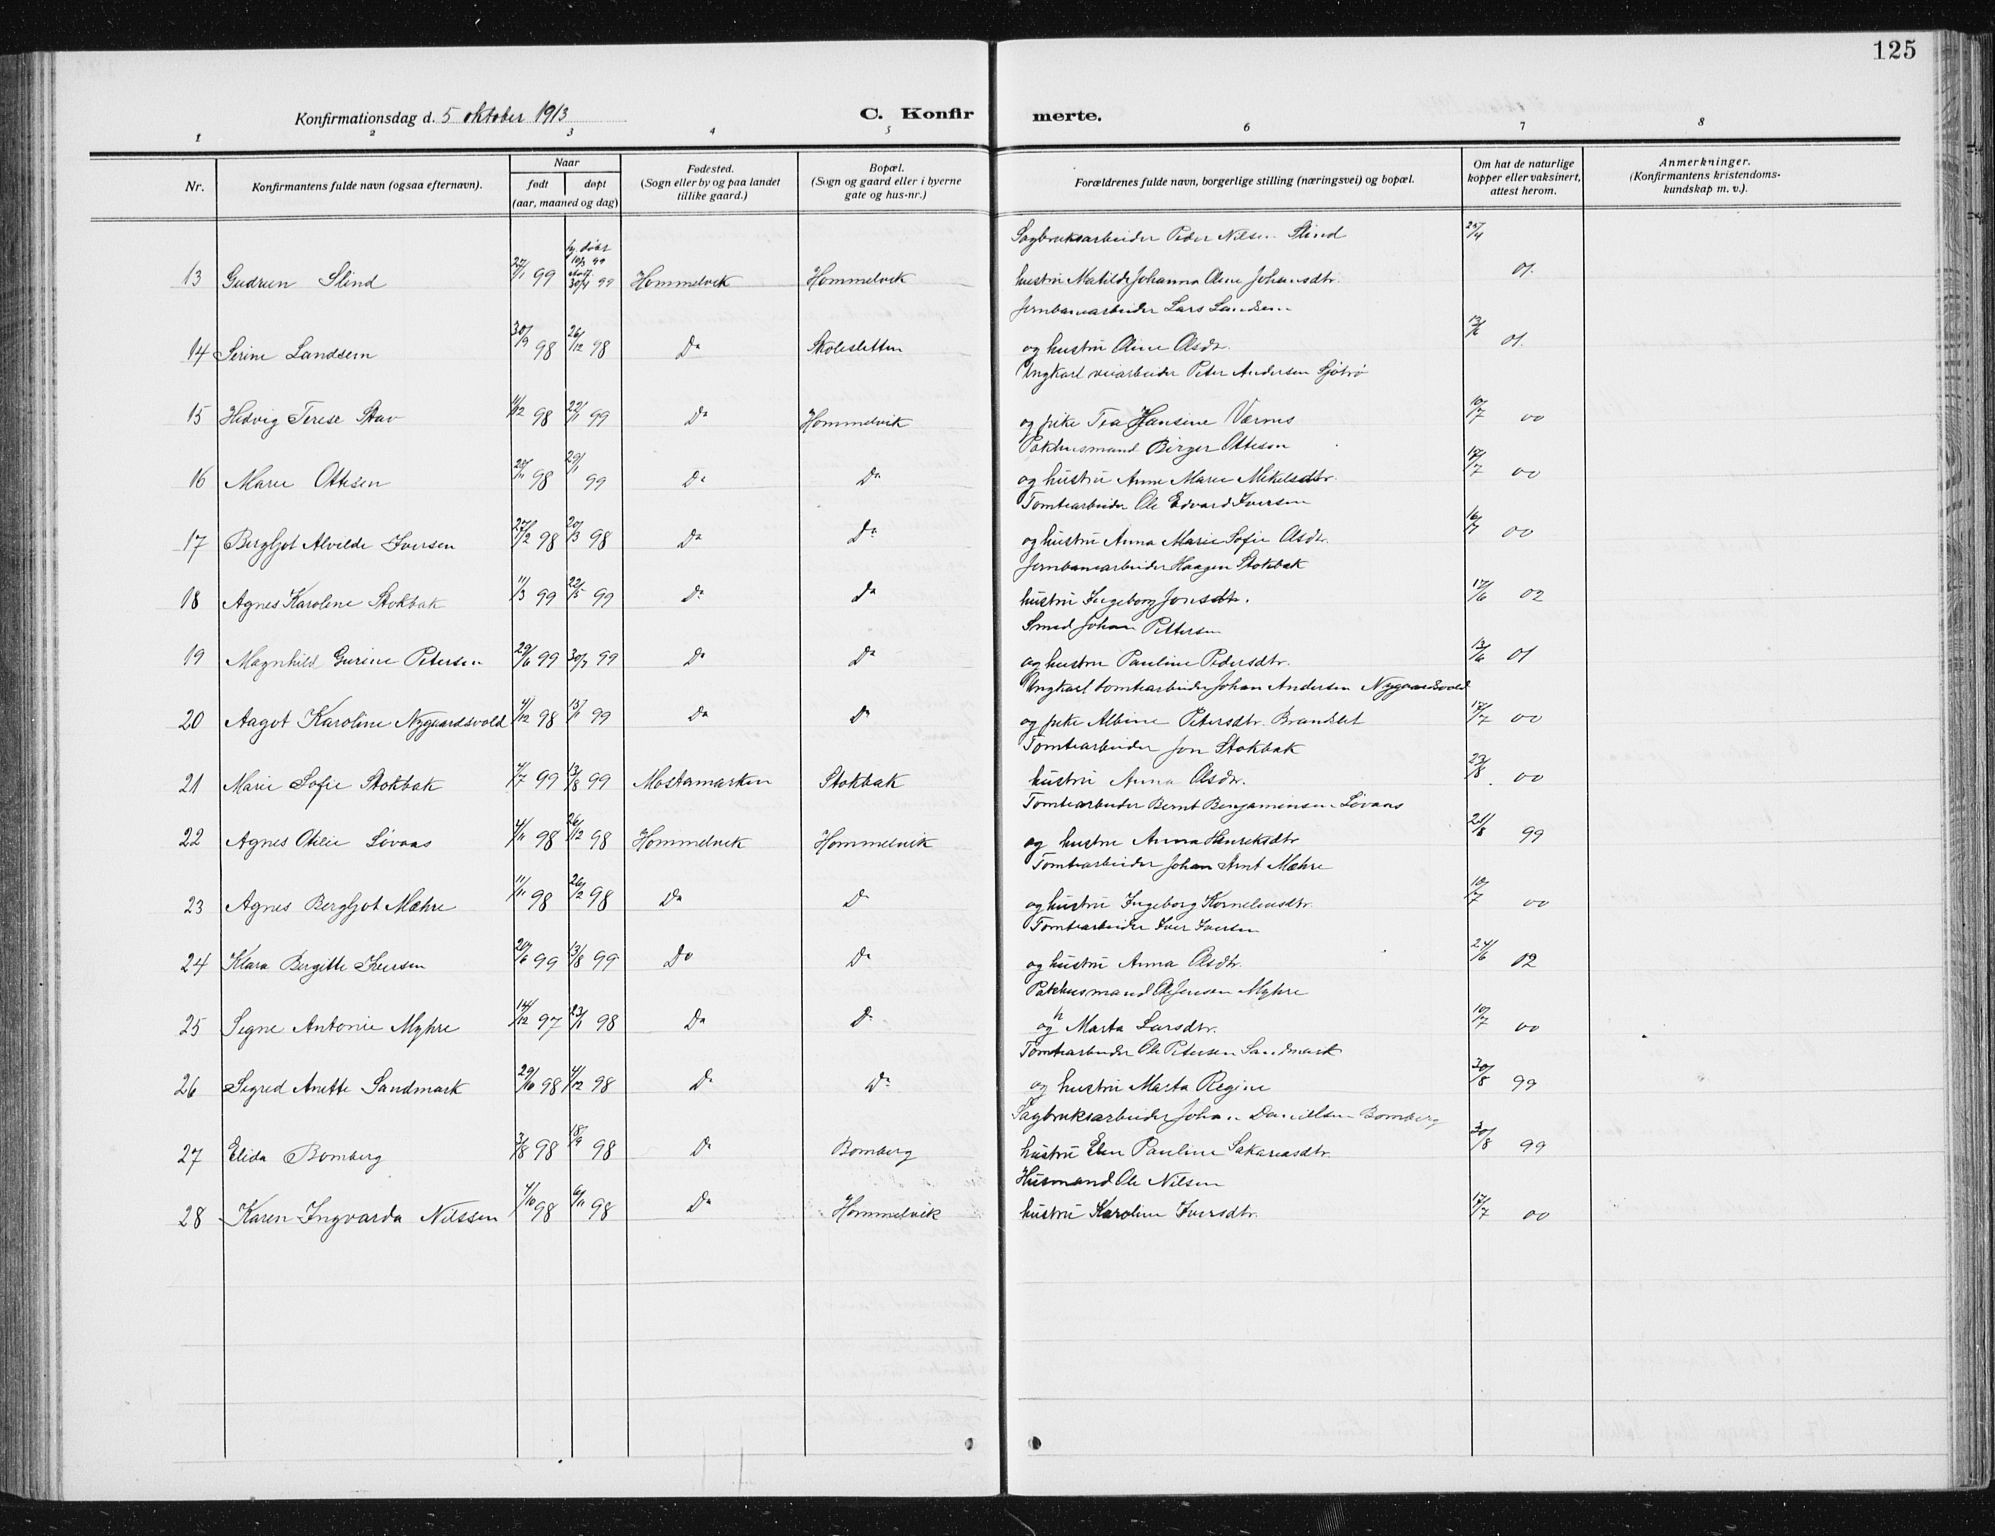 125
Konfirmationsdag d. 5 oktober 1913
C. Konfir merte.
1 2 3 4 5 6 7 8
Nr. Konfirmantens fulde navn (ogsaa efternavn). Naar født døpt (aar, maaned og dag) Fødested. (Sogn eller by og paa landet tillike gaard.) Bopæl. (Sogn og gaard eller i byerne gate og hus-nr.) Forældrenes fulde navn, borgerlige stilling (næringsvei) og bopæl. Om hat de naturlige kopper eller vaksinert, attest herom. Anmerkninger. (Konfirmantens kristendomskundskap m. v.).
Sagbruksarbeider Peder Nilsen Slind 25/4
13 Gudrun Slind 27/1 99 hj. døbt 10/3 99 stadf. 30/4 99 Hommelvik Hommelvik hustru Matilde Johanna Oline Johansdtr. 01.
Jernbanearbeider Lars Landsem
14 Serine Landsem 30/9 98 26/12 98 Do Skolesletten og hustru Oline Olsdr. 13/6 01.
Ungkarl veiarbeider Peter Andersen Sjøtrø
15 Hedvig Terese Stav 11/12 98 22/1 99 Do Hommelvik og pike Tea Hansine Værnes 10/7 00
Pakhusmand Birger Ottesen
16 Marie Ottesen 28/11 98 29/1 99 Do Do og hustru Anne Marie Mikelsdtr. 17/7 00
Tomtearbeider Ole Edvard Iversen
17 Bergljot Alvilde Iversen 27/2 98 20/3 98 Do Do og hustru Anna Marie Sofie Olsdr. 16/7 00
Jernbanearbeider Haagen Stokbak
18 Agnes Karoline Stokbak 11/3 99 22/5 99 Do Do hustru Ingeborg Jonsdtr. 17/6 02
Smed Johan Pettersen
19 Magnhild Gurine Petersen 29/6 99 30/7 99 Do Do og hustru Pauline Pedersdtr. 13/6 01
Ungkarl tomtearbeider Johan Andersen Nygaardsvold
20 Aagot Karoline Nygaardsvold 4/12 98 13/1 99 Do Do og pike Albine Petersdtr. Brandslet 17/7 00
Tomtearbeider Jon Stokbak
21 Marie Sofie Stokbak 4/7 99 13/8 99 Mostamarken Stokbak hustru Anna Olsdr. 23/8 00
Tomtearbeider Bernt Benjaminsen Løvaas
22 Agnes Otilie Løvaas 4/11 98 26/12 98 Hommelvik Hommelvik og hustru Anna Henriksdtr 21/8 99
Tomtearbeider Johan Arnt Mæhre
23 Agnes Bergljot Mæhre 11/11 98 26/12 98 Do Do og hustru Ingeborg Korneliusdtr. 10/7 00
Tomtearbeider Iver Iversen
24 Klara Bergitte Iversen 20/6 99 13/8 99 Do Do og hustru Anna Olsdtr. 24/6 02
Pakhusmand Ole Jensen Myhre
25 Signe Antonie Myhre 14/12 97 23/1 98 Do Do og h Marta Larsdtr. 10/7 00
Tomtearbeider Ole Petersen Sandmark
26 Sigred Anette Sandmark 29/10 98 4/12 98 Do Do og hustru Marta Regine 30/8 99
Sagbruksarbeider Johan Danielsen Bomberg
27 Elida Bomberg 3/8 98 18/9 98 Do Bomberg hustru Elen Pauline Sakariasdtr. 30/8 99
Husmand Ole Nilsen
28 Karen Ingvarda Nilssen 4/10 98 6/11 98 Do Hommelvik hustru Karoline Iversdtr. 17/7 00